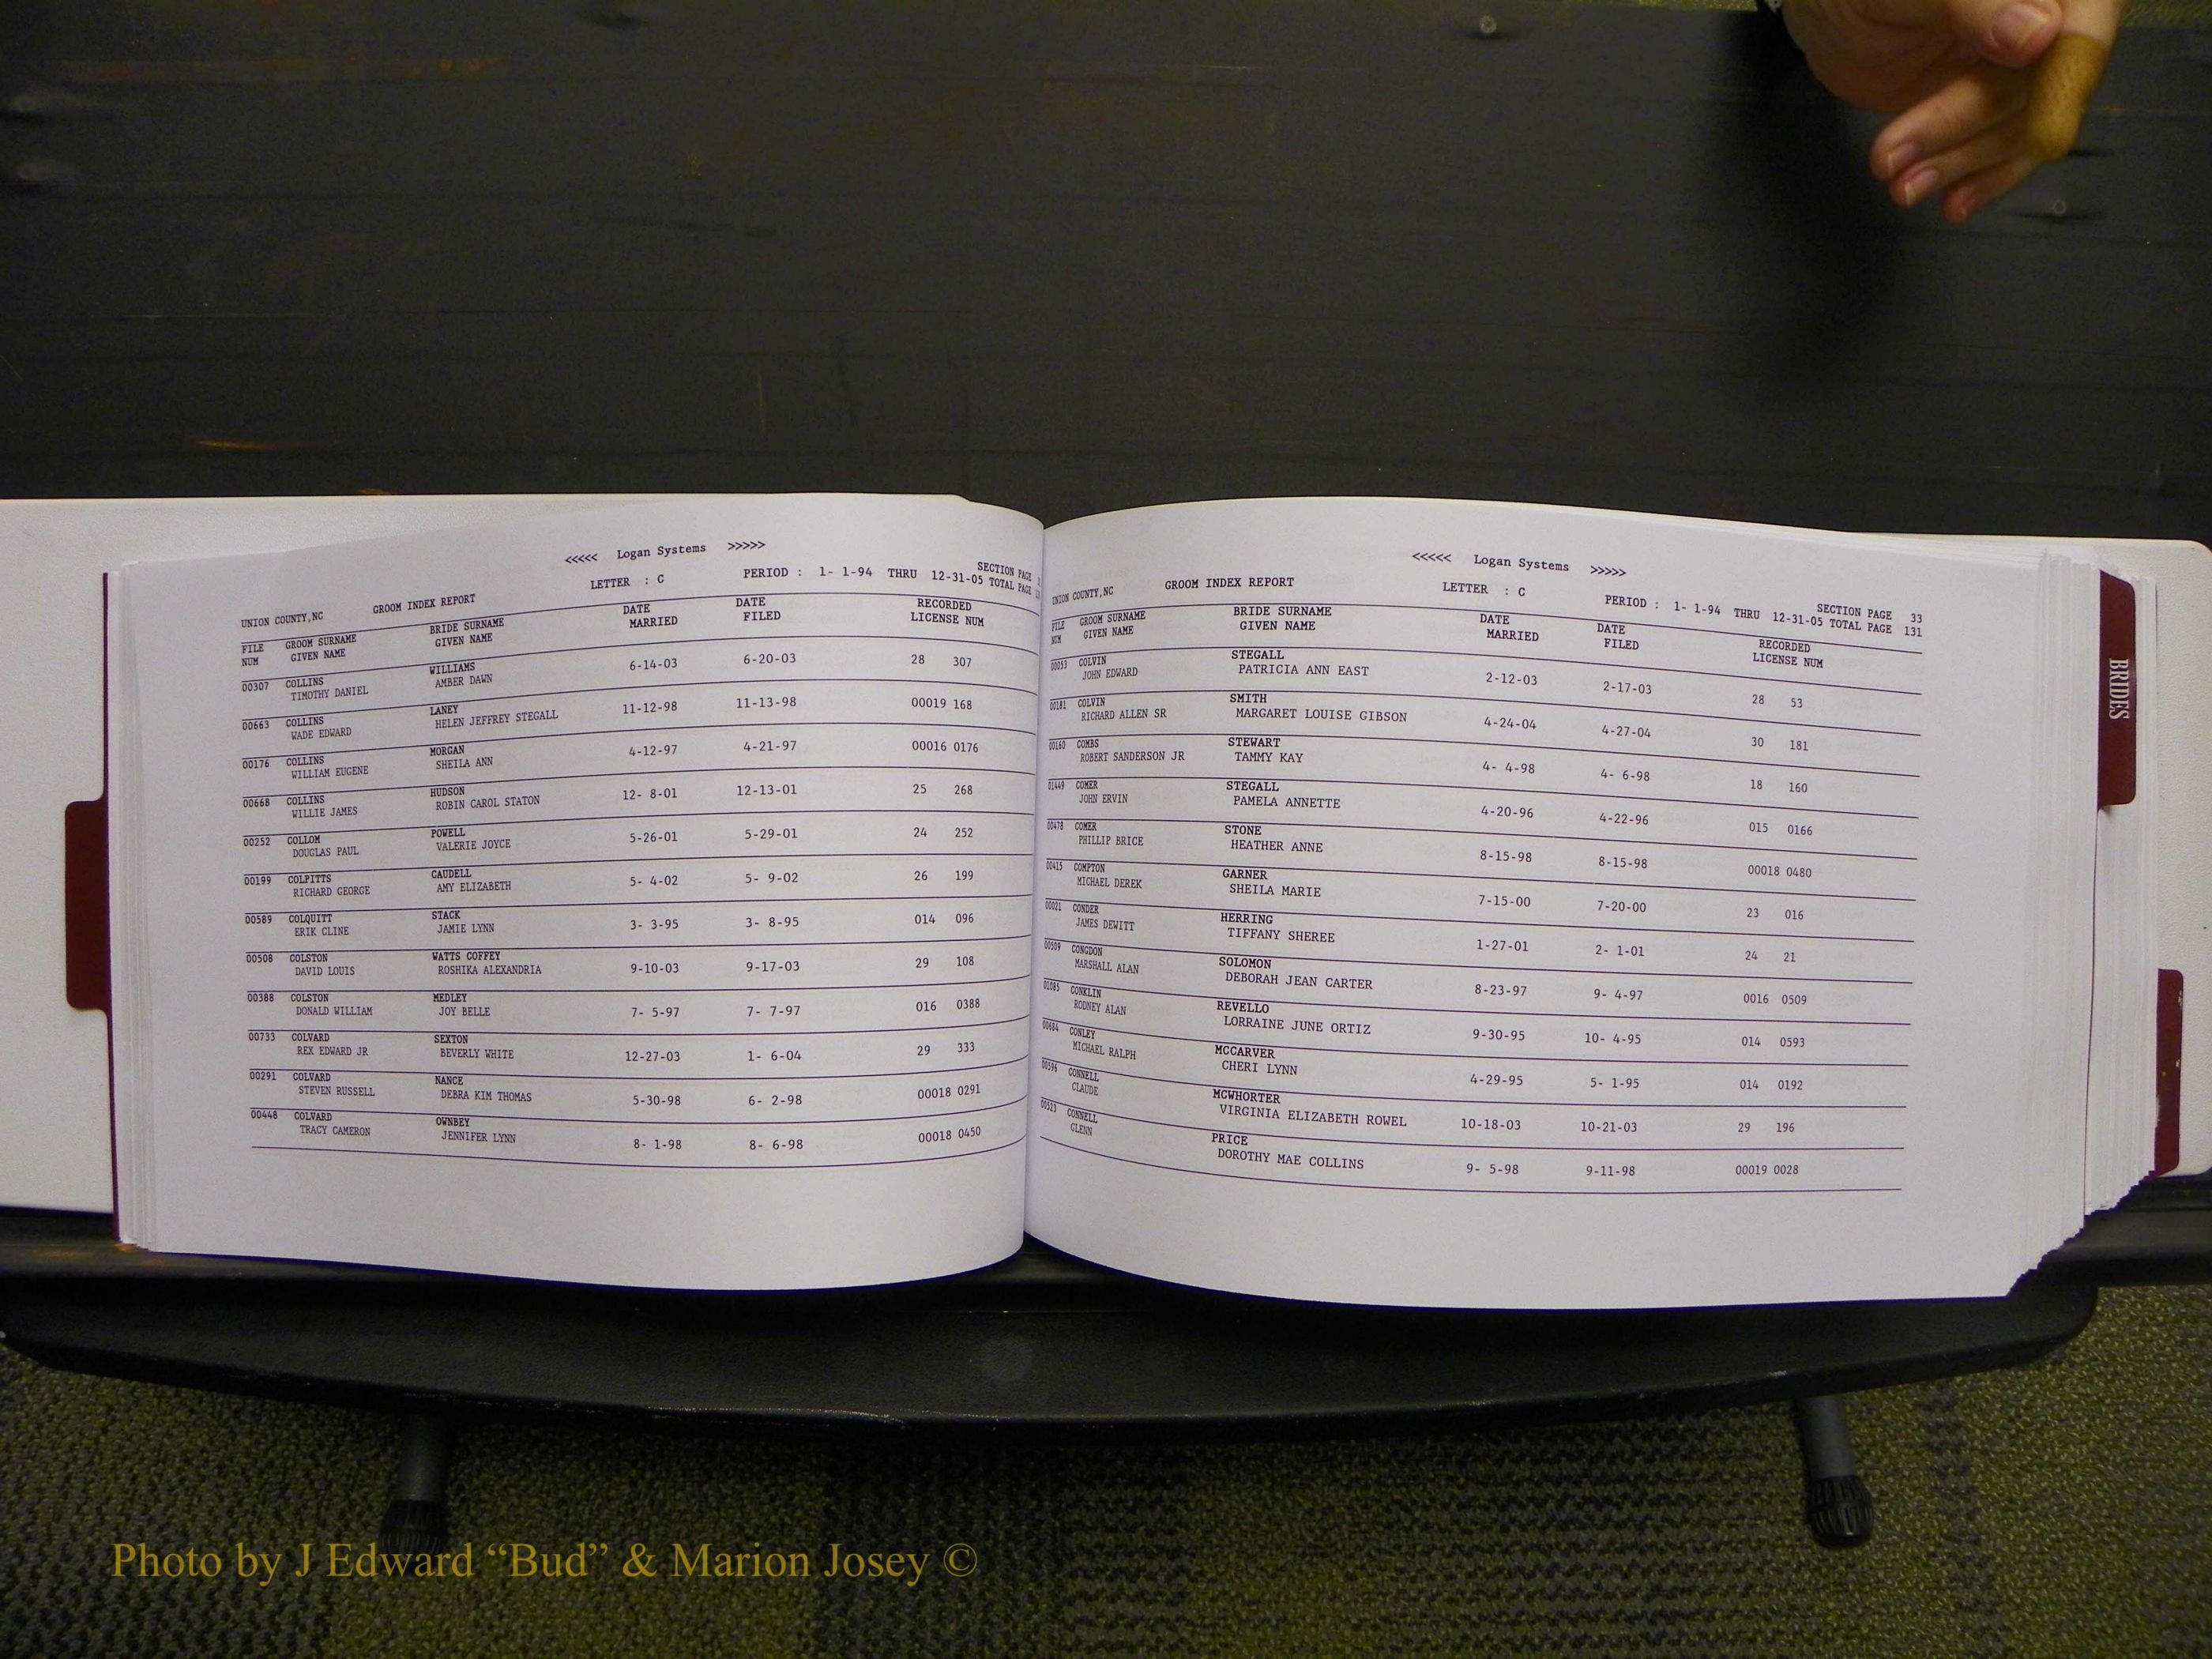 <<<<< Logan Systems >>>>>
UNION COUNTY,NC GROOM INDEX REPORT LETTER : C PERIOD : 1- 1-94 THRU 12-31-05 SECTION PAGE
TOTAL PAGE
FILE GROOM SURNAME BRIDE SURNAME DATE DATE RECORDED
NUM GIVEN NAME GIVEN NAME MARRIED FILED LICENSE NUM
00307 COLLINS WILLIAMS 6-14-03 6-20-03 28 307
TIMOTHY DANIEL AMBER DAWN
00663 COLLINS LANEY 11-12-98 11-13-98 00019 168
WADE EDWARD HELEN JEFFREY STEGALL
00176 COLLINS MORGAN 4-12-97 4-21-97 00016 0176
WILLIAM EUGENE SHEILA ANN
00668 COLLINS HUDSON 12- 8-01 12-13-01 25 268
WILLIE JAMES ROBIN CAROL STATON
00252 COLLOM POWELL 5-26-01 5-29-01 24 252
DOUGLAS PAUL VALERIE JOYCE
00199 COLPITTS CAUDELL 5- 4-02 5- 9-02 26 199
RICHARD GEORGE AMY ELIZABETH
00589 COLQUITT STACK 3- 3-95 3- 8-95 014 096
ERIK CLINE JAMIE LYNN
00508 COLSTON WATTS COFFEY 9-10-03 9-17-03 29 108
DAVID LOUIS ROSHIKA ALEXANDRIA
00388 COLSTON MEDLEY 7- 5-97 7- 7-97 016 0388
DONALD WILLIAM JOY BELLE
00733 COLVARD SEXTON 12-27-03 1- 6-04 29 333
REX EDWARD JR BEVERLY WHITE
00291 COLVARD NANCE 5-30-98 6- 2-98 00018 0291
STEVEN RUSSELL DEBRA KIM THOMAS
00448 COLVARD OWNBEY 8- 1-98 8- 6-98 00018 0450
TRACY CAMERON JENNIFER LYNN
<<<<< Logan Systems >>>>>
UNION COUNTY,NC GROOM INDEX REPORT LETTER : C PERIOD : 1- 1-94 THRU 12-31-05 SECTION PAGE 33
TOTAL PAGE 131
FILE GROOM SURNAME BRIDE SURNAME DATE DATE RECORDED
NUM GIVEN NAME GIVEN NAME MARRIED FILED LICENSE NUM
00053 COLVIN STEGALL 2-12-03 2-17-03 28 53
JOHN EDWARD PATRICIA ANN EAST
00181 COLVIN SMITH 4-24-04 4-27-04 30 181
RICHARD ALLEN SR MARGARET LOUISE GIBSON
00160 COMBS STEWART 4- 4-98 4- 6-98 18 160
ROBERT SANDERSON JR TAMMY KAY
01449 COMER STEGALL 4-20-96 4-22-96 015 0166
JOHN ERVIN PAMELA ANNETTE
00478 COMER STONE 8-15-98 8-15-98 00018 0480
PHILLIP BRICE HEATHER ANNE
00415 COMPTON GARNER 7-15-00 7-20-00 23 016
MICHAEL DEREK SHEILA MARIE
00021 CONDER HERRING 1-27-01 2- 1-01 24 21
JAMES DEWITT TIFFANY SHEREE
00509 CONGDON SOLOMON 8-23-97 9- 4-97 0016 0509
MARSHALL ALAN DEBORAH JEAN CARTER
01085 CONKLIN REVELLO 9-30-95 10- 4-95 014 0593
RODNEY ALAN LORRAINE JUNE ORTIZ
00684 CONLEY MCCARVER 4-29-95 5- 1-95 014 0192
MICHAEL RALPH CHERI LYNN
00596 CONNELL MCWHORTER 10-18-03 10-21-03 29 196
CLAUDE VIRGINIA ELIZABETH ROWEL
00523 CONNELL PRICE 9- 5-98 9-11-98 00019 0028
GLENN DOROTHY MAE COLLINS
BRIDES
Photo by J Edward “Bud” & Marion Josey ©